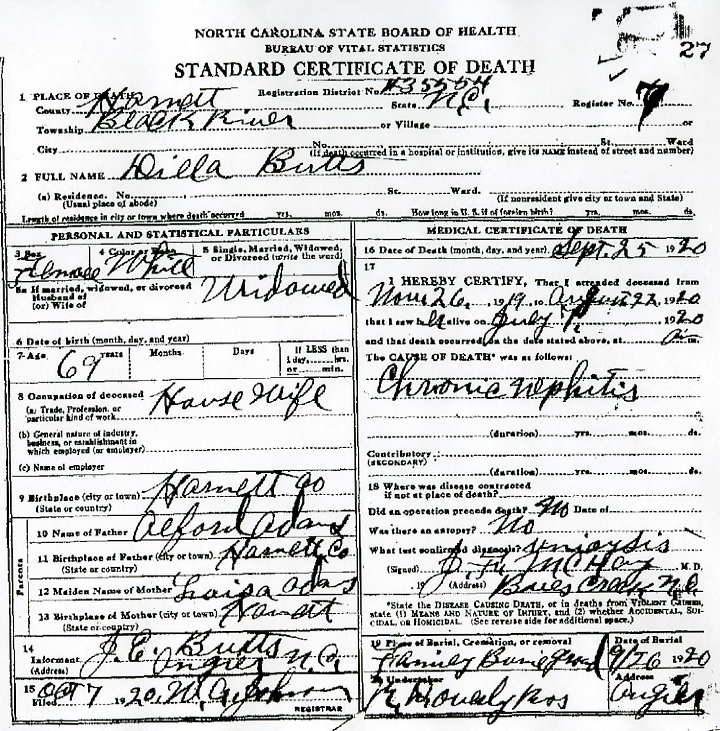 27
NORTH CAROLINA STATE BOARD OF HEALTH
BUREAU OF VITAL STATISTICS
STANDARD CERTIFICATE OF DEATH
1 PLACE OF DEATH Registration District No.
County Harnett State N.C. Register No.
Township Black River or Village
City No. St. Ward
(If death occurred in a hospital or institution, give its NAME instead of street and number)
2 FULL NAME Dilla Butts
(a) Residence. No. St. Ward.
(Usual place of abode) (If nonresident give city or town and State)
Length of residence in city or town where death occurred yrs. mos. ds. How long in U. S. if of foreign birth? yrs. mos. ds.
PERSONAL AND STATISTICAL PARTICULARS
3 Sex 4 Color or Race 5 Single, Married, Widowed, or Divorced (write the word)
Female White Widowed
5a If married, widowed, or divorced
Husband of
(or) Wife of
6 Date of birth (month, day, and year)
7 Age 69 years Months Days If LESS than
1 day, hrs.
or min.
8 Occupation of deceased House Wife
(a) Trade, Profession, or
particular kind of work
(b) General nature of industry,
business, or establishment in
which employed (or employer)
(c) Name of employer
9 Birthplace (city or town) Harnett Co
(State or country)
Parents
10 Name of Father Alford Adams
11 Birthplace of Father (city or town) Harnett Co
(State or country)
12 Maiden Name of Mother Adams
13 Birthplace of Mother (city or town) Harnett
(State or country)
14 J. E. Butts
Informant Angier N.C.
15 Oct 7 1920 Johnson
Filed REGISTRAR
MEDICAL CERTIFICATE OF DEATH
16 Date of Death (month, day, and year) Sept. 25 1920
17
I HEREBY CERTIFY, That I attended deceased from
Nov. 26, 1919, to 22 1920
that I saw h alive on July 1920
and that death occurred on the date stated above, at a m.
The CAUSE OF DEATH* was as follows:
Chronic Nephitis
(duration) yrs. mos. ds.
Contributory
(SECONDARY)
(duration) yrs. mos. ds.
18 Where was disease contracted
if not at place of death?
Did an operation precede death? No Date of
Was there an autopsy? No
What test confirmed diagnosis?
(Signed) McKay M. D.
, 19 (Address) Buies Creek, N.C.
*State the DISEASE CAUSING DEATH, or in deaths from VIOLENT CAUSES,
state (1) MEANS AND NATURE OF INJURY, and (2) whether ACCIDENTAL, SUI-
CIDAL, or HOMICIDAL. (See reverse side for additional space.)
19 Place of Burial, Cremation, or removal Date of Burial
Family 9/26 1920
20 Undertaker Address
Bros Angier